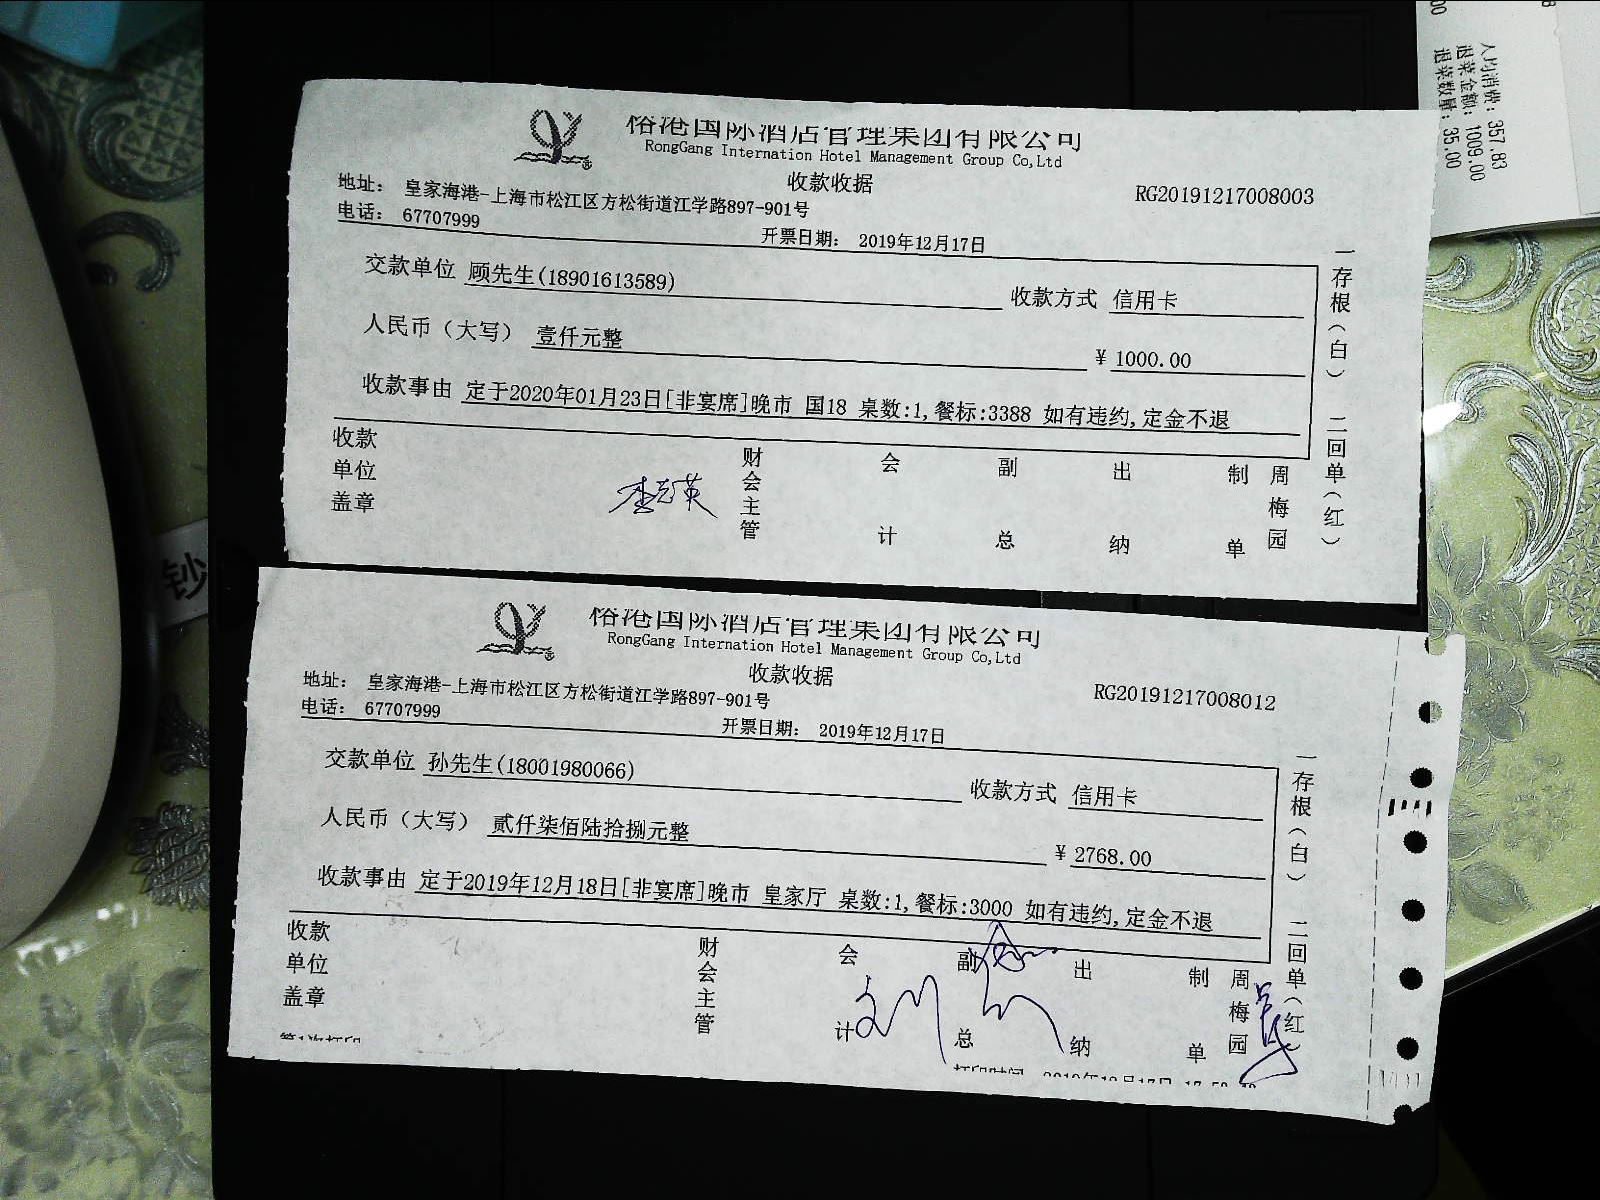 人均消费: 357.83
退菜金额: 1009.00
退菜数量: 35.00
钞
榕港国际酒店管理集团有限公司
RongGang International Hotel Management Group Co,Ltd
收款收据
地址: 皇家海港-上海市松江区方松街道江学路897-901号
RG20191217008003
电话: 67707999
开票日期: 2019年12月17日
交款单位 顾先生(18901613589)
收款方式 信用卡
人民币(大写) 壹仟元整
¥ 1000.00
收款事由 定于2020年01月23日[非宴席]晚市 国18 桌数:1,餐标:3388 如有违约,定金不退
收款单位盖章
财会主管
会计
副总
出纳
制单
周梅园
一存根(白) 二回单(红)
榕港国际酒店管理集团有限公司
RongGang International Hotel Management Group Co,Ltd
收款收据
地址: 皇家海港-上海市松江区方松街道江学路897-901号
RG20191217008012
电话: 67707999
开票日期: 2019年12月17日
交款单位 孙先生(18001980066)
收款方式 信用卡
人民币(大写) 贰仟柒佰陆拾捌元整
¥ 2768.00
收款事由 定于2019年12月18日[非宴席]晚市 皇家厅 桌数:1,餐标:3000 如有违约,定金不退
收款单位盖章
财会主管
会计
副总
出纳
制单
周梅园
一存根(白) 二回单(红)
第1次打印
打印时间 2019年12月17日